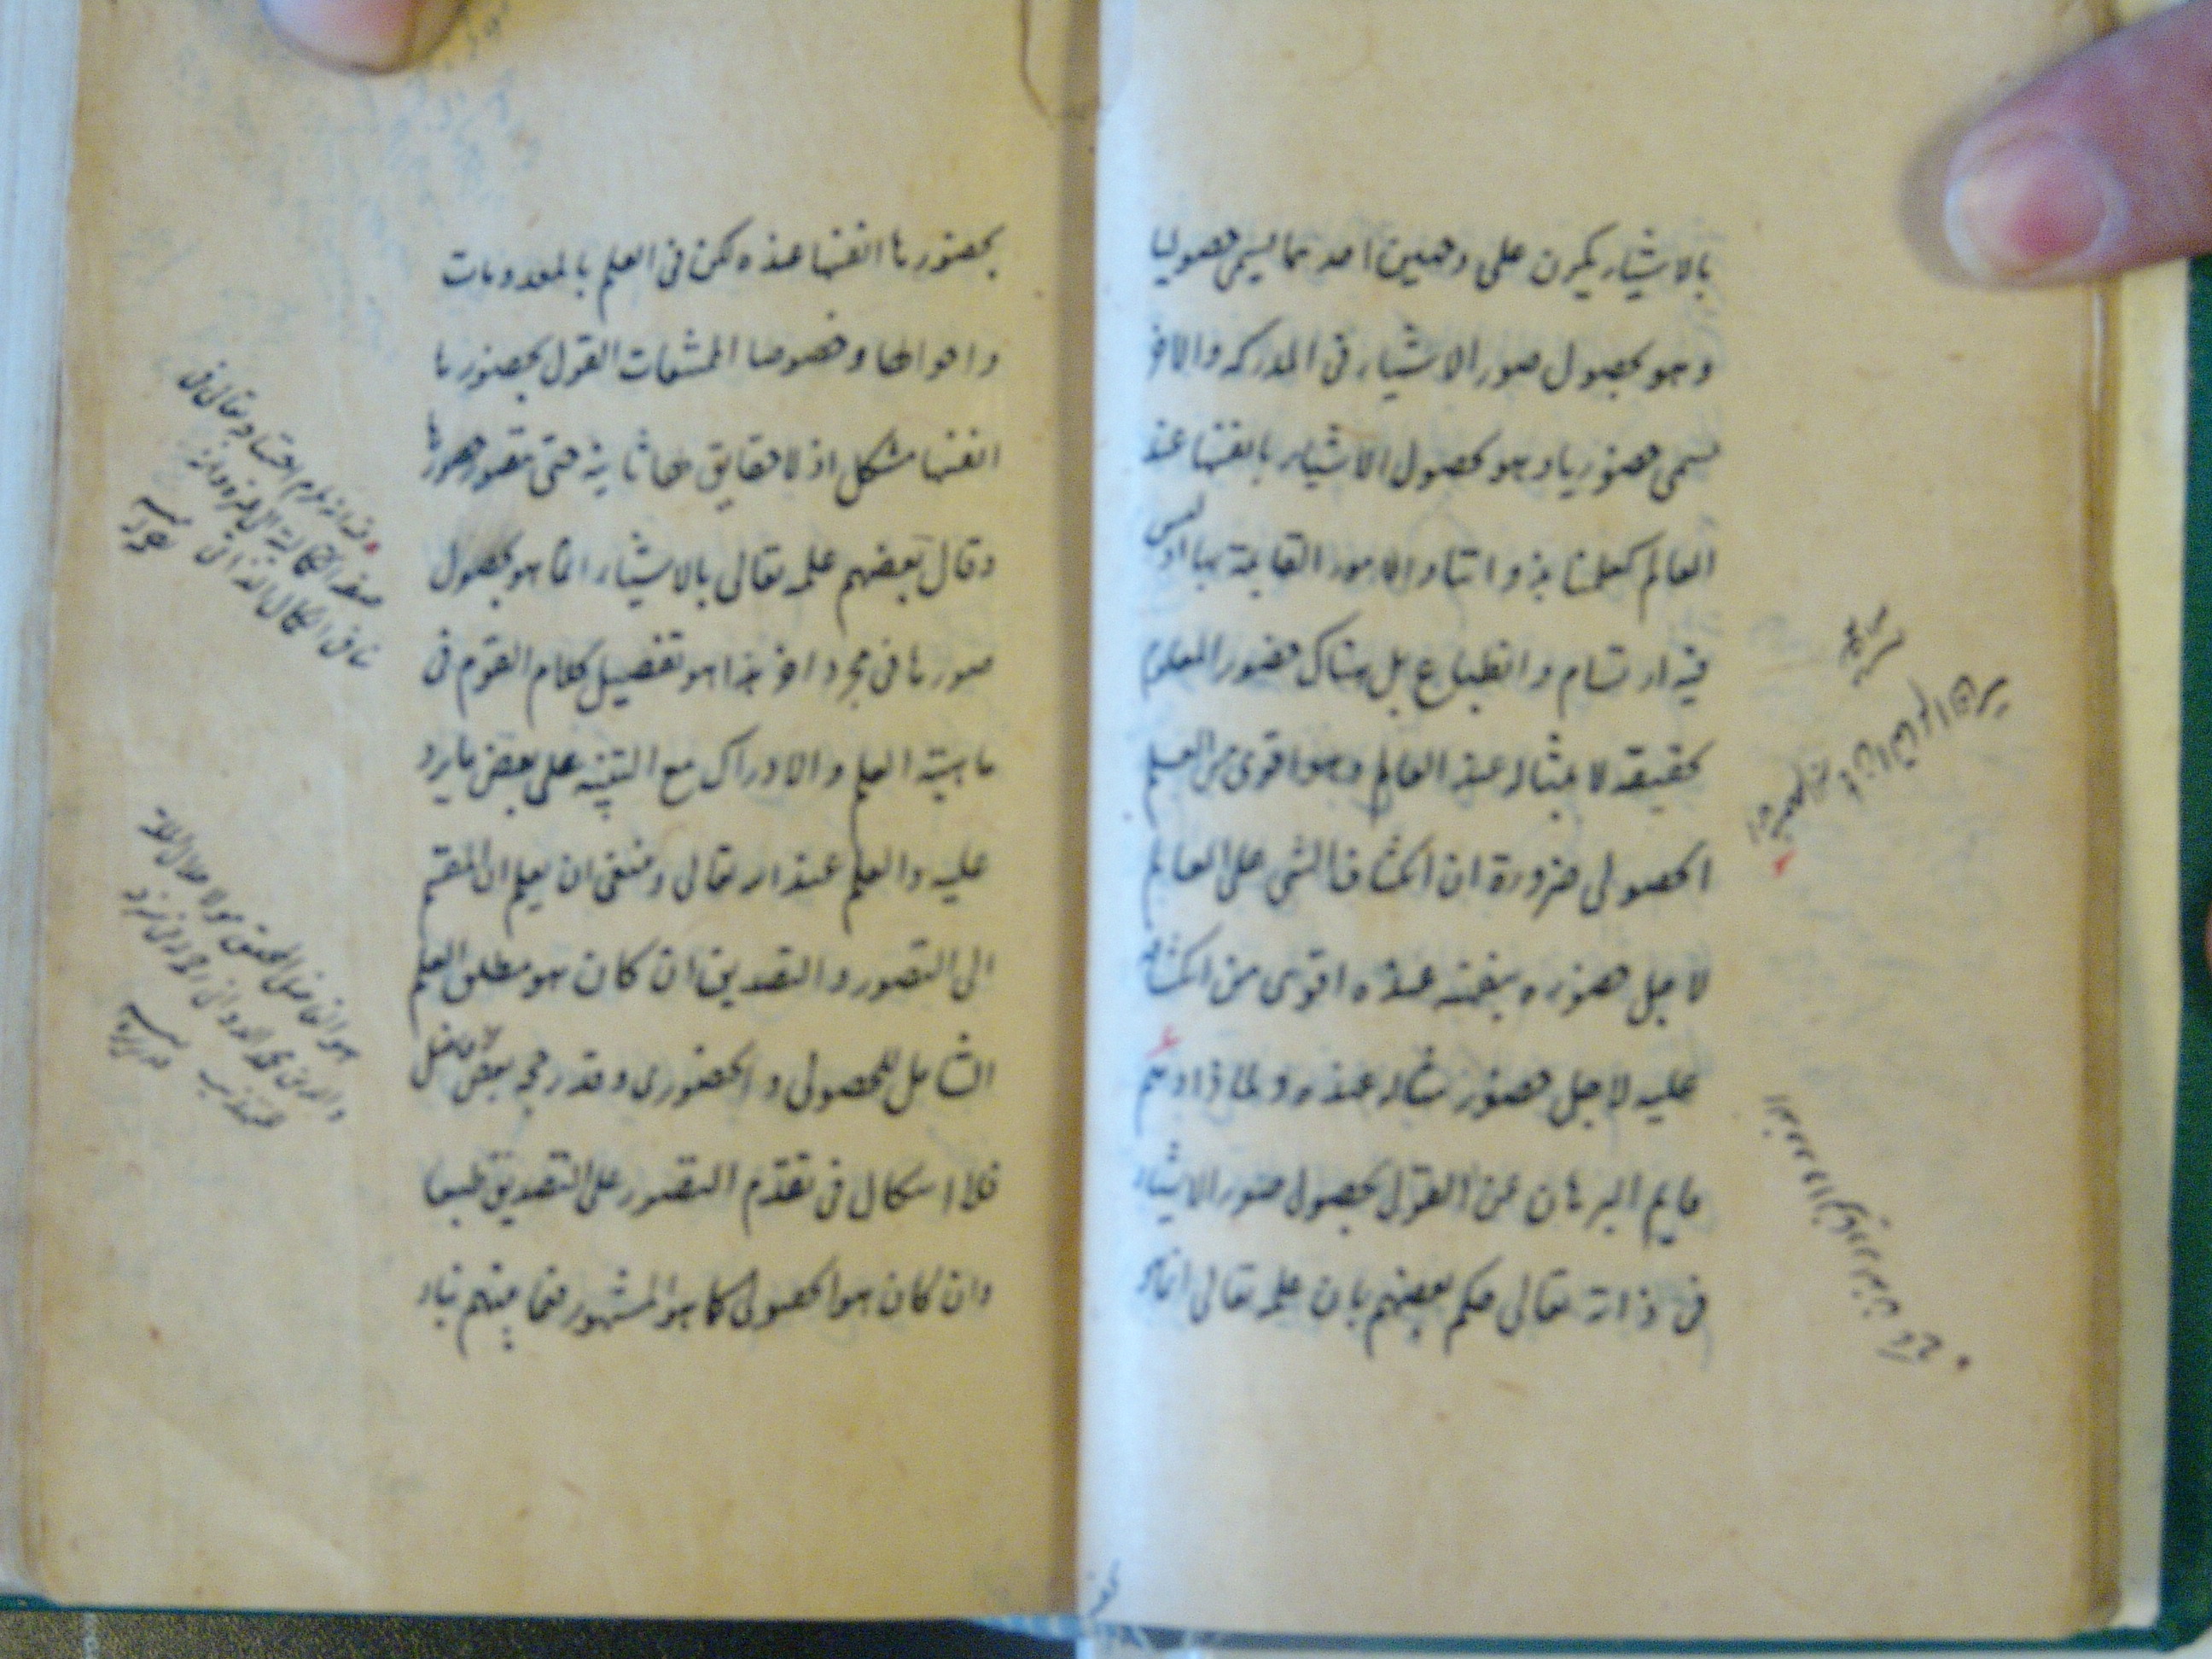 بالاشياء يكون على وجهين احدهما يسمى حصوليا
وهو بحصول صور الاشياء فى المدركه والاخر
يسمى حضوريا وهو بحصول الاشياء بانفسها عند
العالم كعلمنا بذواتنا والامور القايمة بها اذ ليس
فيه ارتسام وانطباع بل هناك حضور المعلوم
بحقيقته لا بمثاله عند العالم وهو اقوى من العلم
الحصولى ضرورة ان انكشاف الشى على العالم
لاجل حضوره بنفسه عنده اقوى من انكشافه
عليه لاجل حضور مثاله عنده ولما ذادهم
قايم البرهان عن القول بحصول صور الاشياء
فى ذاته تعالى حكم بعضهم بان علمه تعالى انما هو
بحضورها انفسها عنده لكن فى العلم بالمعدومات
واحوالها وخصوصا الممتنعات القول بحضورها
انفسها مشكل اذ لا حقايق لها ثابتة حتى يتصور حضورها
وقال بعضهم علمه تعالى بالاشياء انما هو بحصول
صورها فى مجرد اخر هذا هو تفصيل كلام القوم فى
ماهية العلم والادراك مع التنبيه على بعض ما يرد
عليه والعلم عند الله تعالى وينبغى ان يعلم ان المقسم
الى التصور والتصديق ان كان هو مطلق العلم
الشامل للحصولى والحضورى وقد رجحه بعض الافاضل
فلا اشكال فى تقدم التصور على التصديق طبعا
وان كان هو الحصولى كما هو المشهور فيما بينهم بناء
هو الفاضل المحقق مولانا جلال الملة
والدين محمد الدوانى